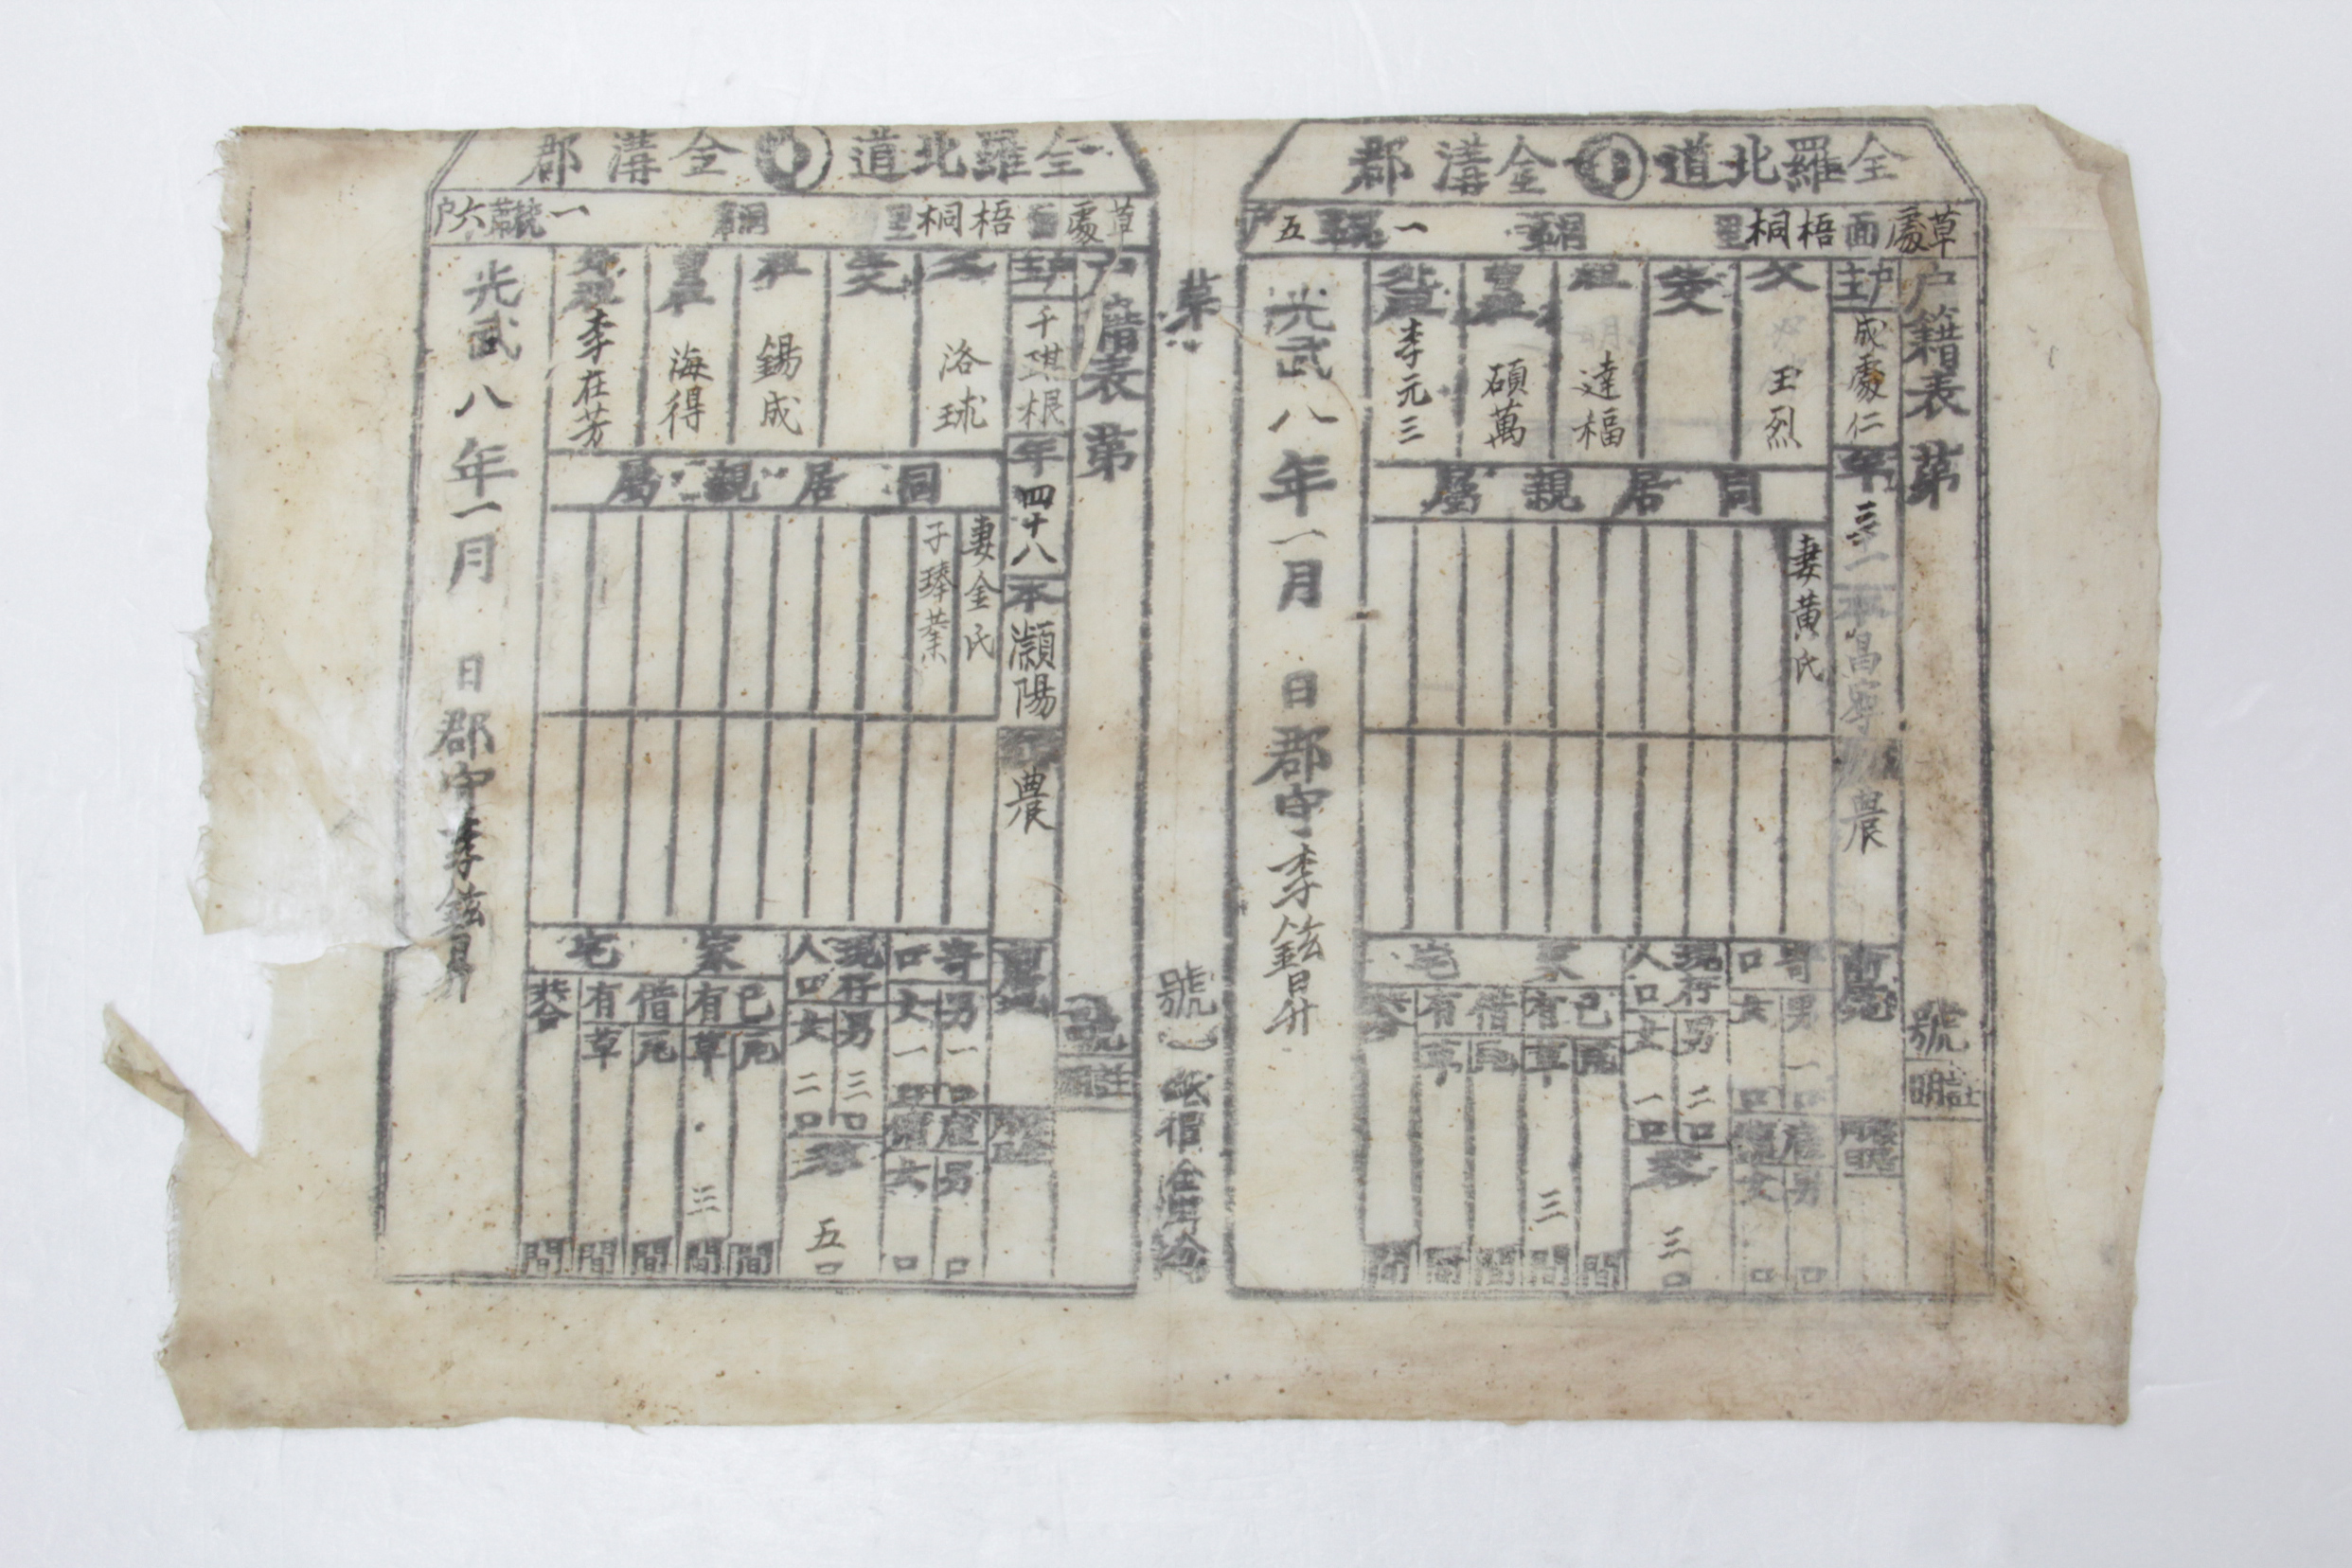 全羅北道 金溝郡
草處面 梧桐里 一統 五戶
戶籍表 第 號
註明
戶主 成處仁 年 三一 本 昌寧 農
父 玉烈
生父
祖 達福
曾祖 碩萬
外祖 李元三
同居親屬
妻黃氏
寄口 男 一口 女 口
雇傭 男 口 女 口
現存人口 男 二口 女 一口
三口
家宅
己有 瓦 間 草 三 間
借有 瓦 間 草 間
共合 間
光武八年一月 日 郡守 李鉉昇
第 號
全羅北道 金溝郡
草處面 梧桐里 一統 第六戶
戶籍表 第 號
註明
戶主 千琪根 年 四十八 本 灝陽 農
父 洛球
生父
祖 錫成
曾祖 海得
外祖 李在芳
同居親屬
妻金氏
子琫業
寄口 男 一口 女 一口
雇傭 男 口 女 口
現存人口 男 三口 女 二口
五口
家宅
己有 瓦 間 草 三 間
借有 瓦 間 草 間
共合 間
光武八年一月 日 郡守 李鉉昇